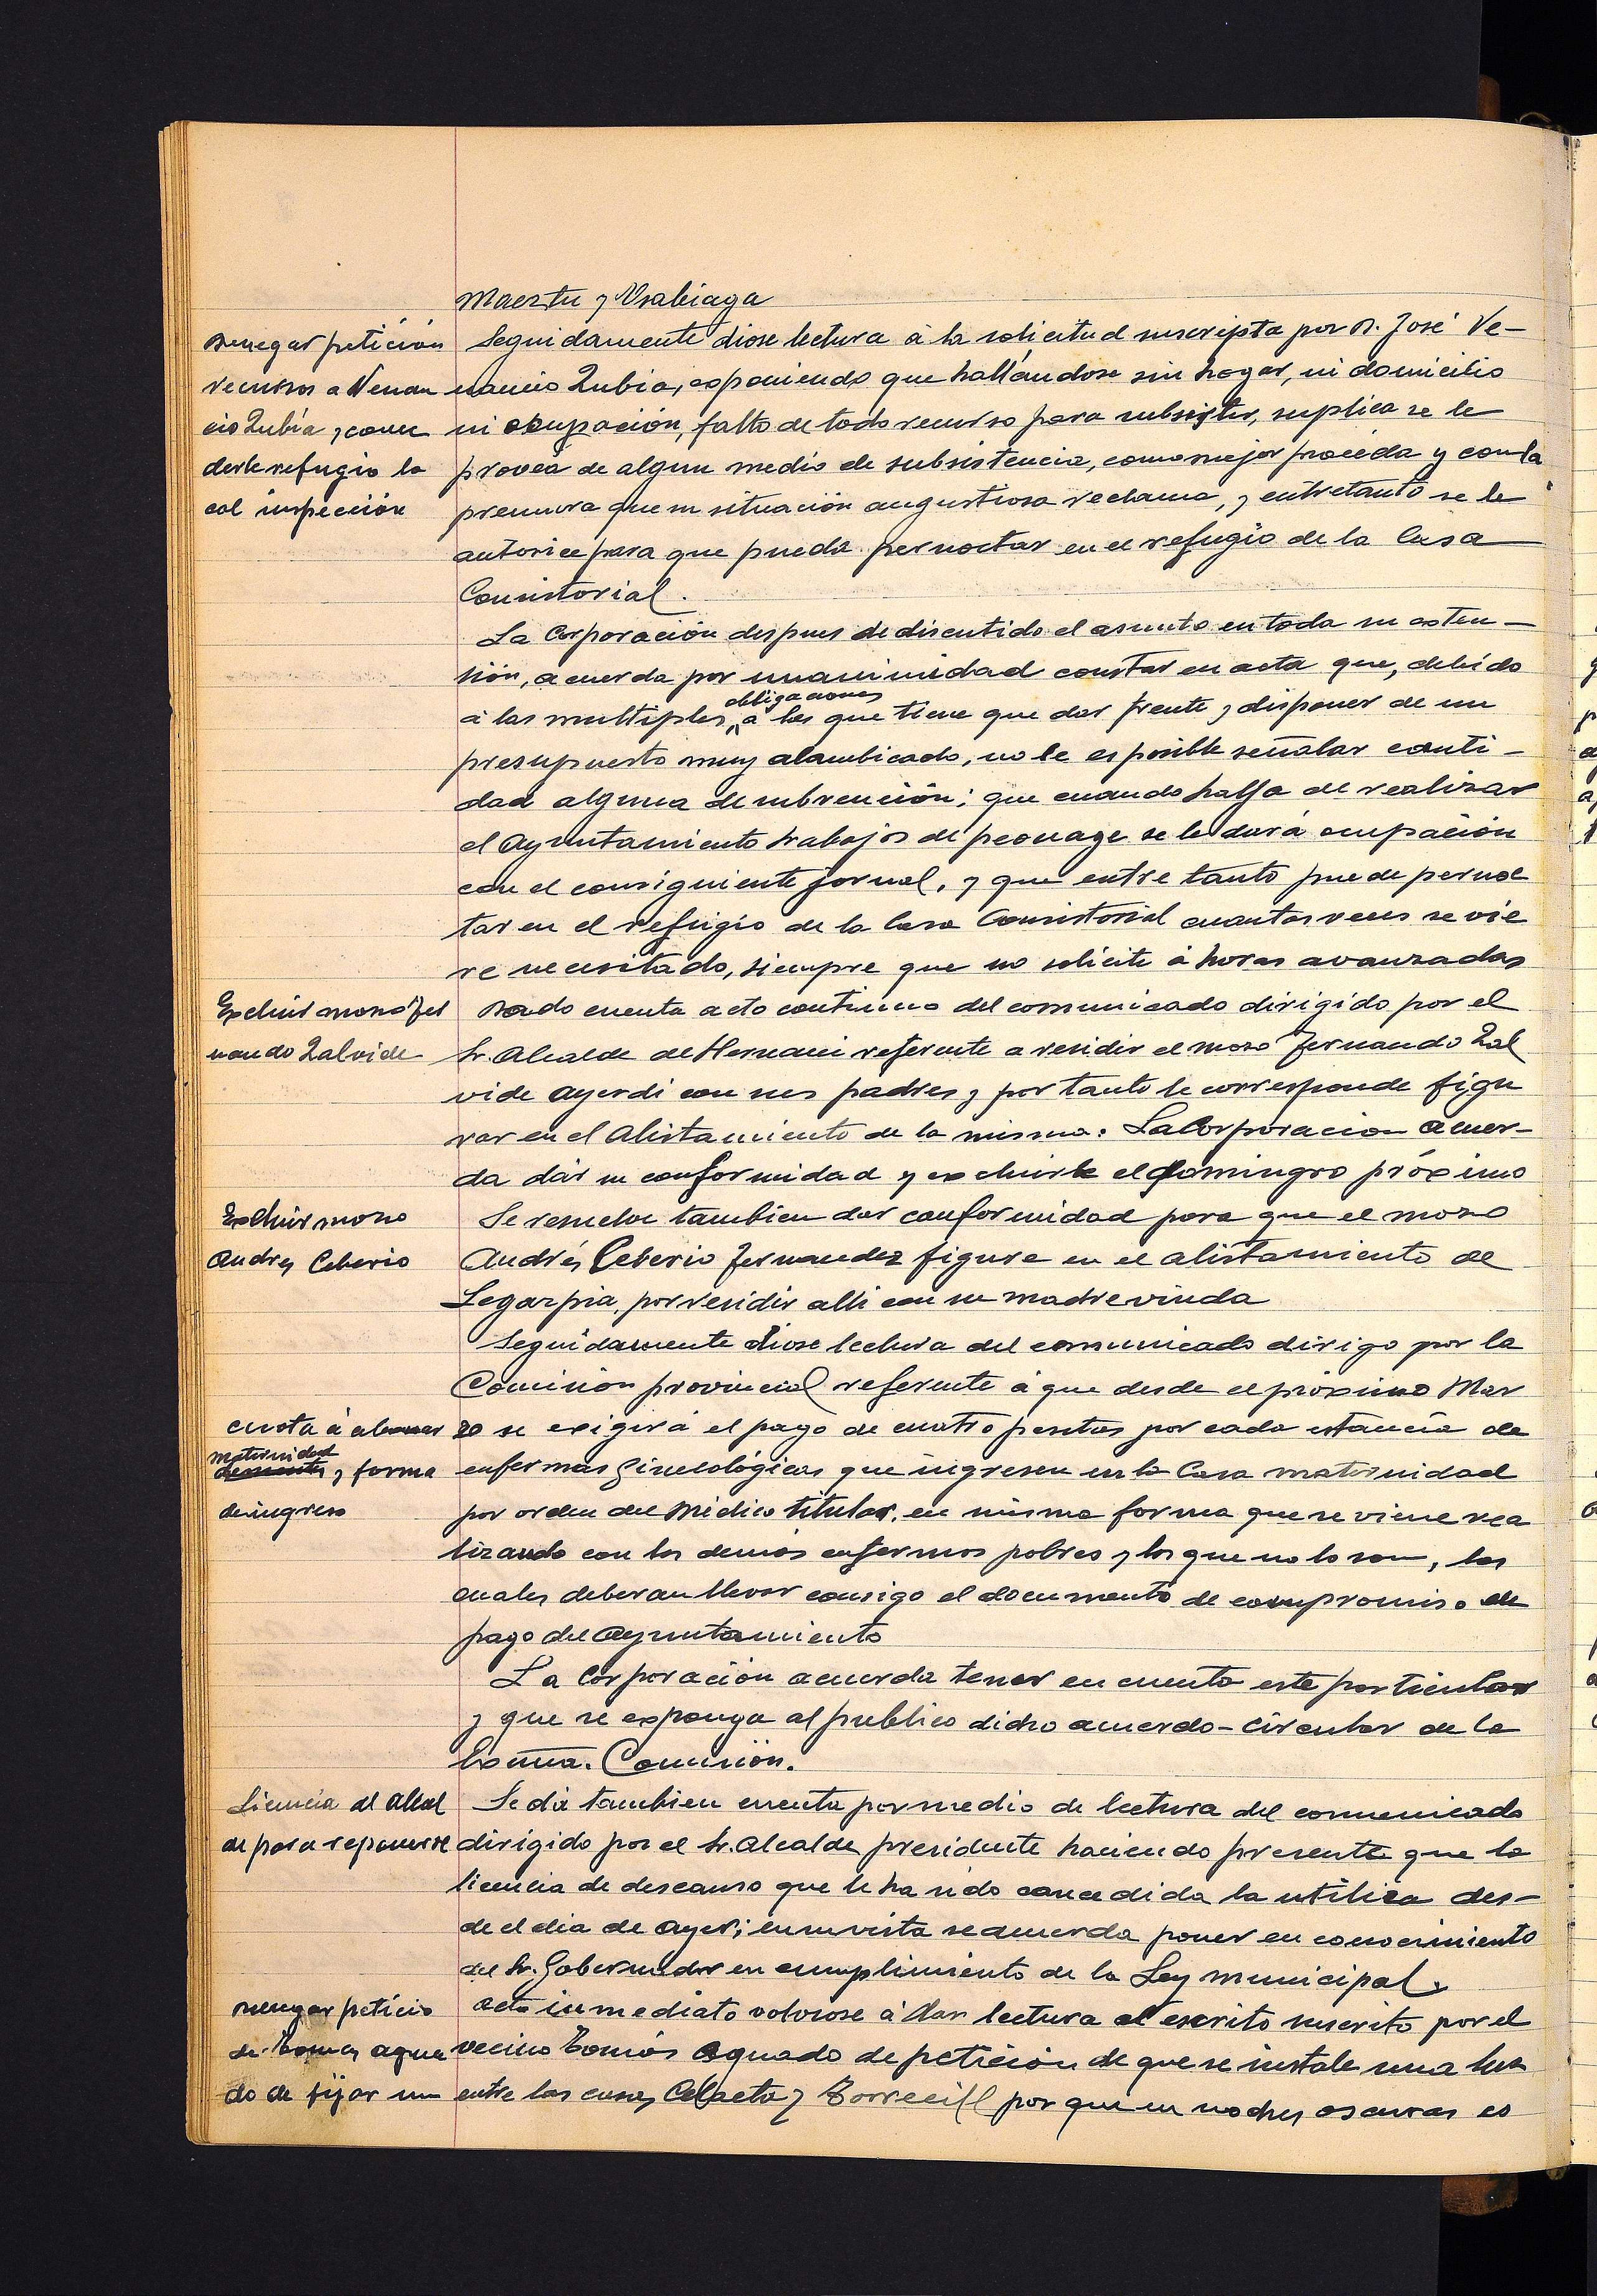 Maeztu y Usabiaga
Denegar petición
recursos a Venan
cio Zubia, y conce
derle refugio lo
cal inspección
Seguidamente diose lectura á la solicitud suscripta por D. José Ve-
nancio Zubia, exponiendo que hallándose sin hogar, ni domicilio
ni ocupación, falto de todo recurso para subsistir, suplica se le
provea de algun medio de subsistencia, como mejor proceda y con la
premura que su situación angustiosa reclama, y entretanto se le
autorice para que pueda pernoctar en el refugio de la Casa
Consistorial.
La Corporación despues de discutido el asunto en toda su exten-
sión, acuerda por unanimidad constar en acta que, debido
á las multiples obligaciones á las que tiene que dar frente y disponer de un
presupuesto muy alambicado, no le es posible señalar canti-
dad alguna de subvención; que cuando halla de realizar
el Ayuntamiento trabajos de peonage se le dará ocupación
con el consiguiente jornal, y que entre tanto puede pernoc
tar en el refugio de la Casa Consistorial cuantas veces se vie
re necesitado, siempre que no solicite á horas avanzadas
Excluir mozo Fer
nando Zalvide
Dado cuenta acto continuo del comunicado dirigido por el
Sr. Alcalde de Hernani referente a residir el mozo Fernando Zal
vide Ayerdi con sus padres y por tanto le corresponde figu
rar en el Alistamiento de la misma: La Corporacion acuer-
da dár su conformidad y excluirle el domingro próximo
Excluir mozo
Andres Ceberio
Se resuelve tambien dar conformidad para que el mozo
Andrés Ceberio Fernandez figure en el alistamiento de
Legazpia, por residir alli con su madre viuda
Seguidamente diose lectura del comunicado dirigo por la
Comision provincial referente á que desde el próximo Mar
cuota á abonar
maternidad
dementes y forma
de ingreso
zo se exigirá el pago de cuatro pesetas por cada estancia de
enfermas ginecológicas que ingresen en la Casa maternidad
por orden del Médico titular, en misma forma que se viene rea
lizando con los demás enfermos pobres y los que no lo son, los
cuales deberan llevar consigo el documento de compromiso de
pago del Ayuntamiento
La Corporación acuerda tener en cuenta este particular
y que se exponga al publico dicho acuerdo-circular de la
Excma. Comisión.
Licencia al Alcal
de para reponerse
Se dá tambien cuenta por medio de lectura del comunicado
dirigido por el Sr. Alcalde presidente haciendo presente que la
licencia de descanso que le ha sido concedida la utiliza des-
de el dia de ayer; en su vista se acuerda poner en conocimiento
del Sr. Gobernador en cumplimiento de la Ley municipal.
Denegar petició
de Tomas Agua
do de fijar un
Acto inmediato volviose á dar lectura al escrito suscrito por el
vecino Tomás Aguado de petición de que se instale una luz
entre las casas Celaeta y Torrecill por que en noches oscuras es